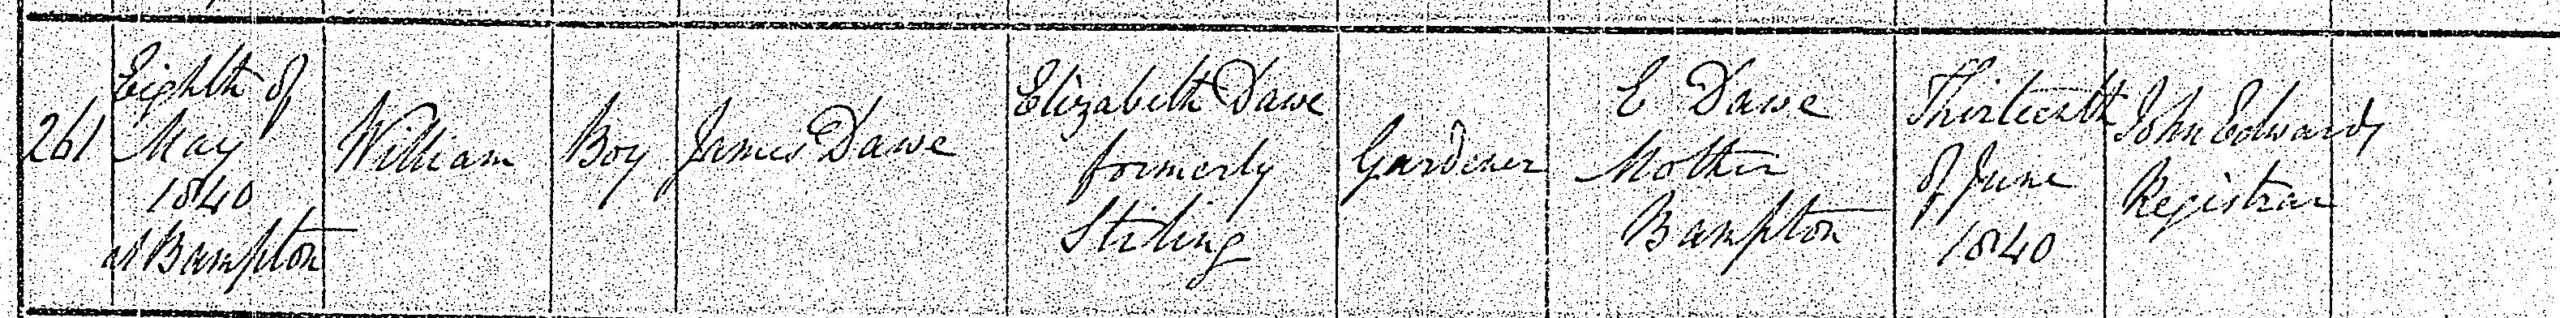 261
Eighth of
May
1840
at Bampton
William
Boy
James Dawe
Elizabeth Dawe
formerly
Stiling
Gardener
E Dawe
Mother
Bampton
Thirteenth
of June
1840
John Edwards
Registrar